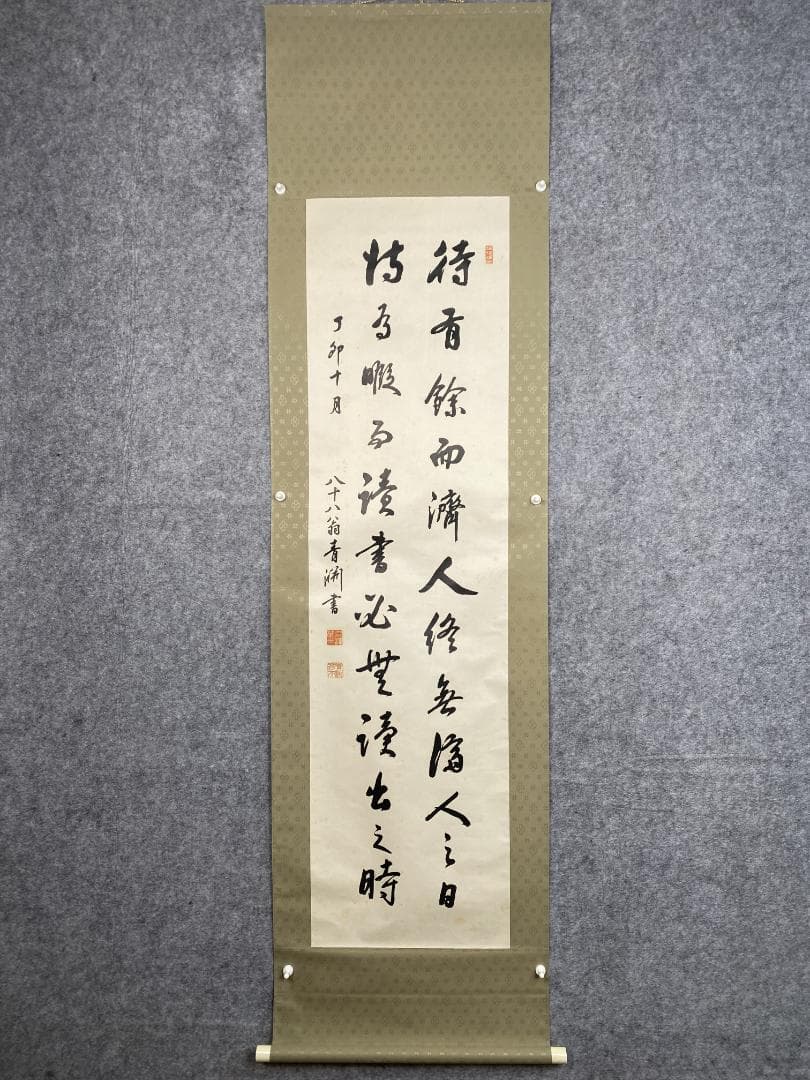 待有餘而濟人終無濟人之日
待有暇而讀書必無讀書之時
丁卯十月 八十八翁青淵書